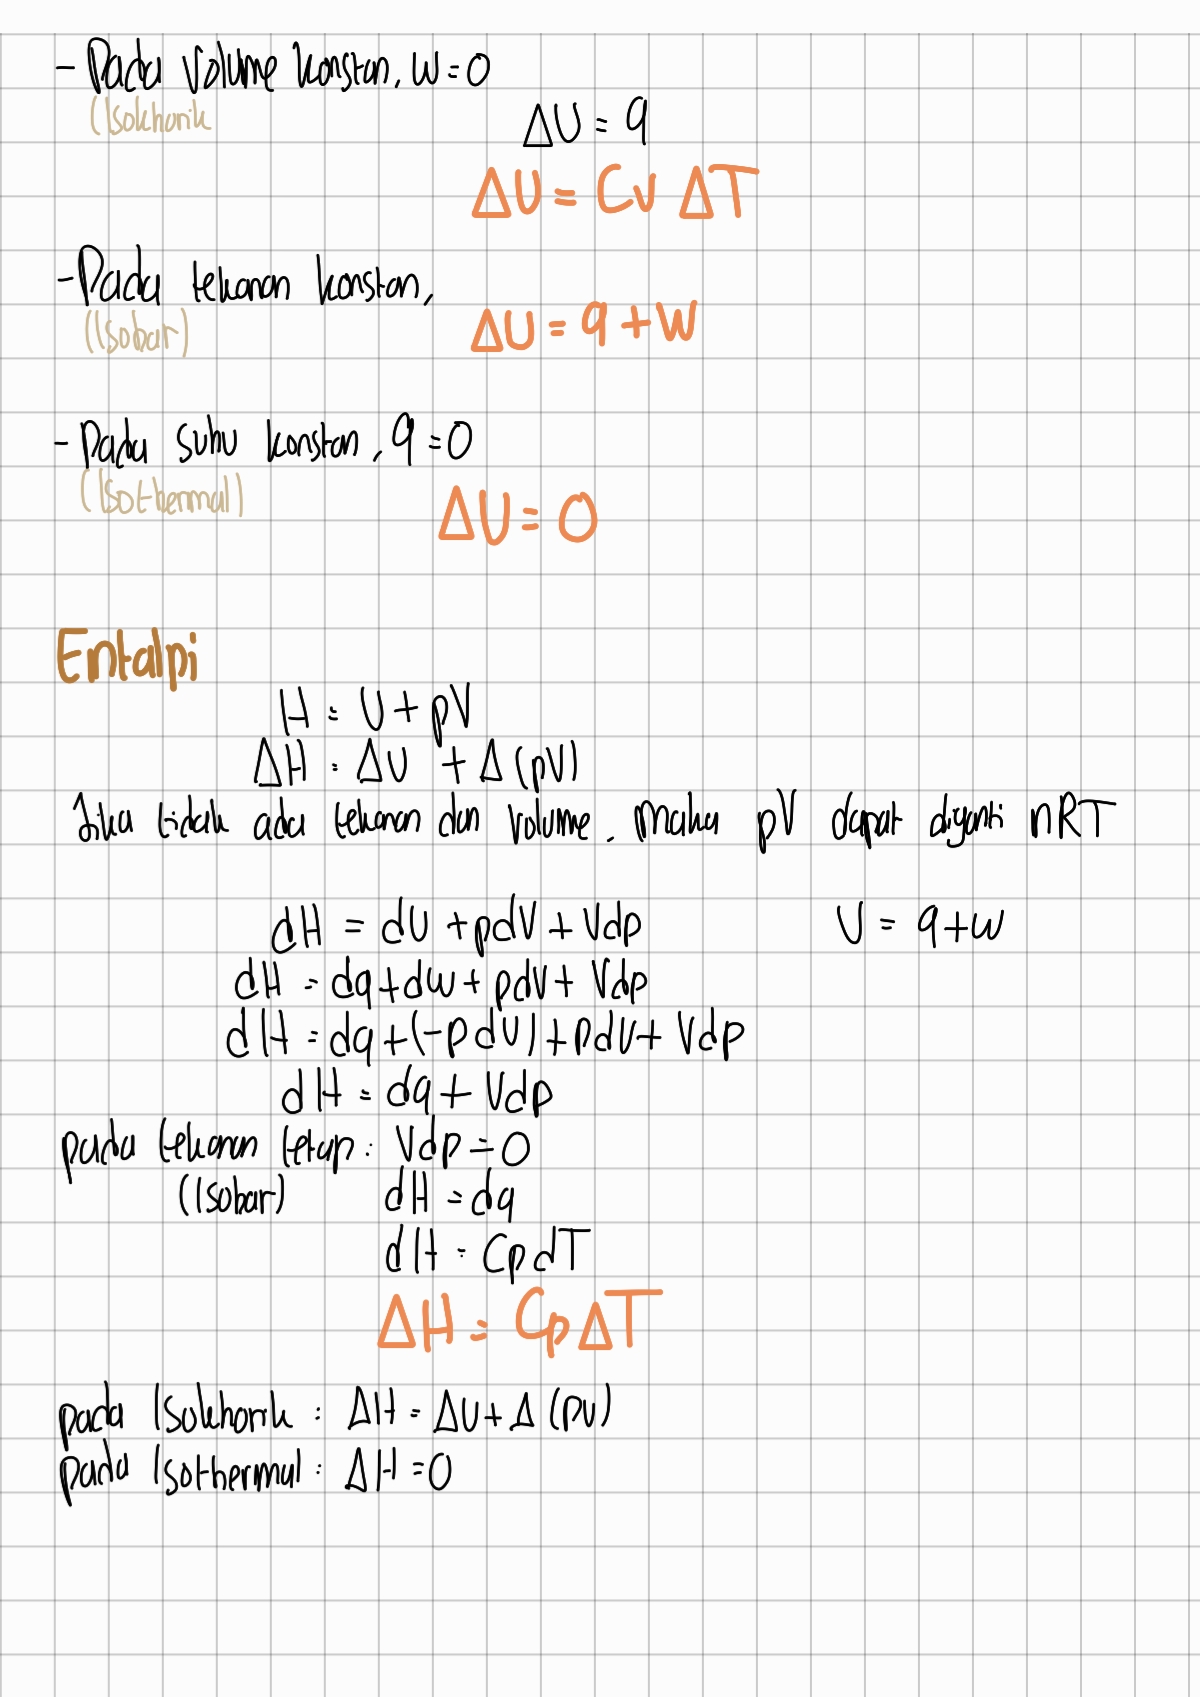 - Pada volume konstan, w = 0
(Isokhorik
ΔU = q
ΔU = Cv ΔT
- Pada tekanan konstan,
(Isobar)
ΔU = q + w
- Pada suhu konstan, q = 0
(Isothermal)
ΔU = 0
Entalpi
H = U + pV
ΔH = ΔU + Δ (pV)
Jika tidak ada tekanan dan volume, maka pV dapat diganti nRT
dH = dU + pdV + Vdp
U = q + w
dH = dq + dw + pdV + Vdp
dH = dq + (-p dV) + pdV + Vdp
dH = dq + Vdp
pada tekanan tetap : Vdp = 0
(Isobar) dH = dq
dH = Cp dT
ΔH = Cp ΔT
pada Isokhorik : ΔH = ΔU + Δ (pV)
pada Isothermal : ΔH = 0